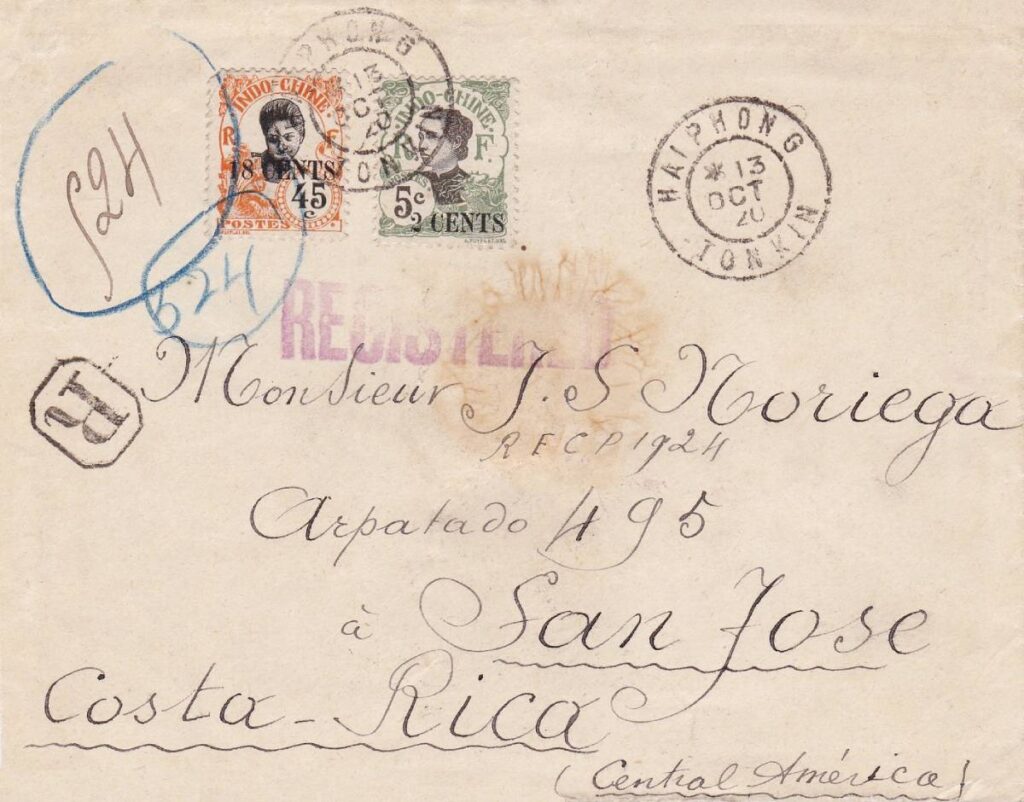 HAIPHONG
13
OCT
20
TONKIN
INDO-CHINE
R F
18 CENTS
45 c
POSTES
INDO-CHINE
R F.
5c
2 CENTS
HAIPHONG
* 13
OCT
20
TONKIN
524
524
REGISTERED
R
Monsieur J. S Noriega
RECP1924
Arpatado 495
à San Jose
Costa-Rica
(Central América)